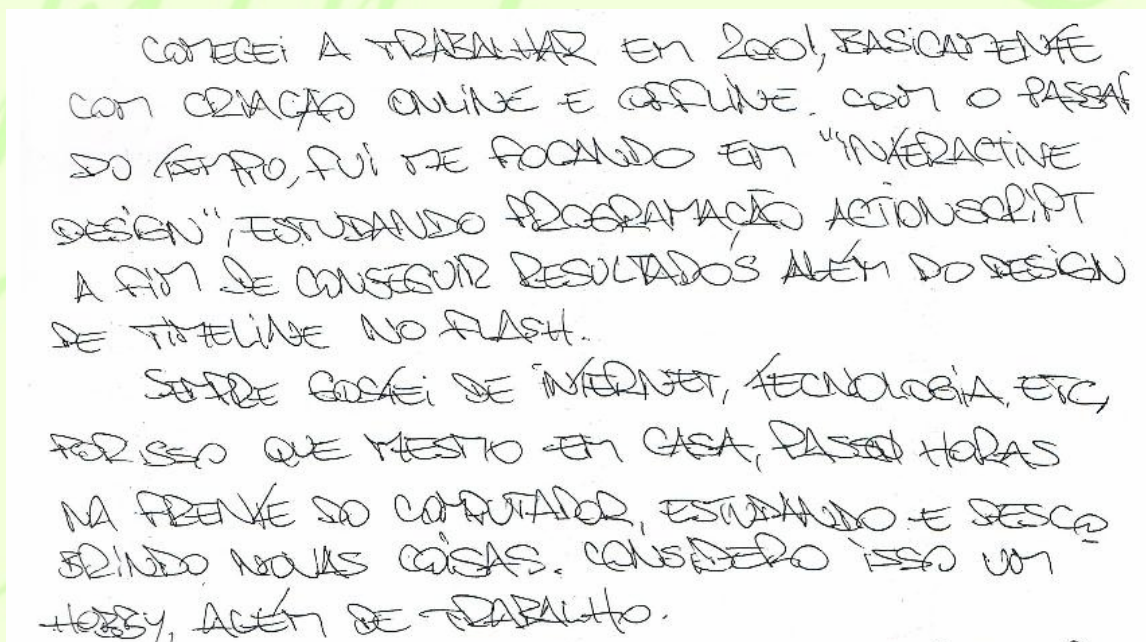 COMECEI A TRABALHAR EM 2001, BASICAMENTE
COM CRIAÇÃO ONLINE E OFFLINE. COM O PASSAR
DO TEMPO, FUI ME FOCANDO EM "INTERACTIVE
DESIGN", ESTUDANDO PROGRAMAÇÃO ACTIONSCRIPT
A FIM DE CONSEGUIR RESULTADOS ALÉM DO DESIGN
DE TIMELINE NO FLASH.
SEMPRE GOSTEI DE INTERNET, TECNOLOGIA, ETC,
POR ISSO QUE MESMO EM CASA, PASSO HORAS
NA FRENTE DO COMPUTADOR, ESTUDANDO E DESCO
BRINDO NOVAS COISAS. CONSIDERO ISSO UM
HOBBY, ALÉM DE TRABALHO.